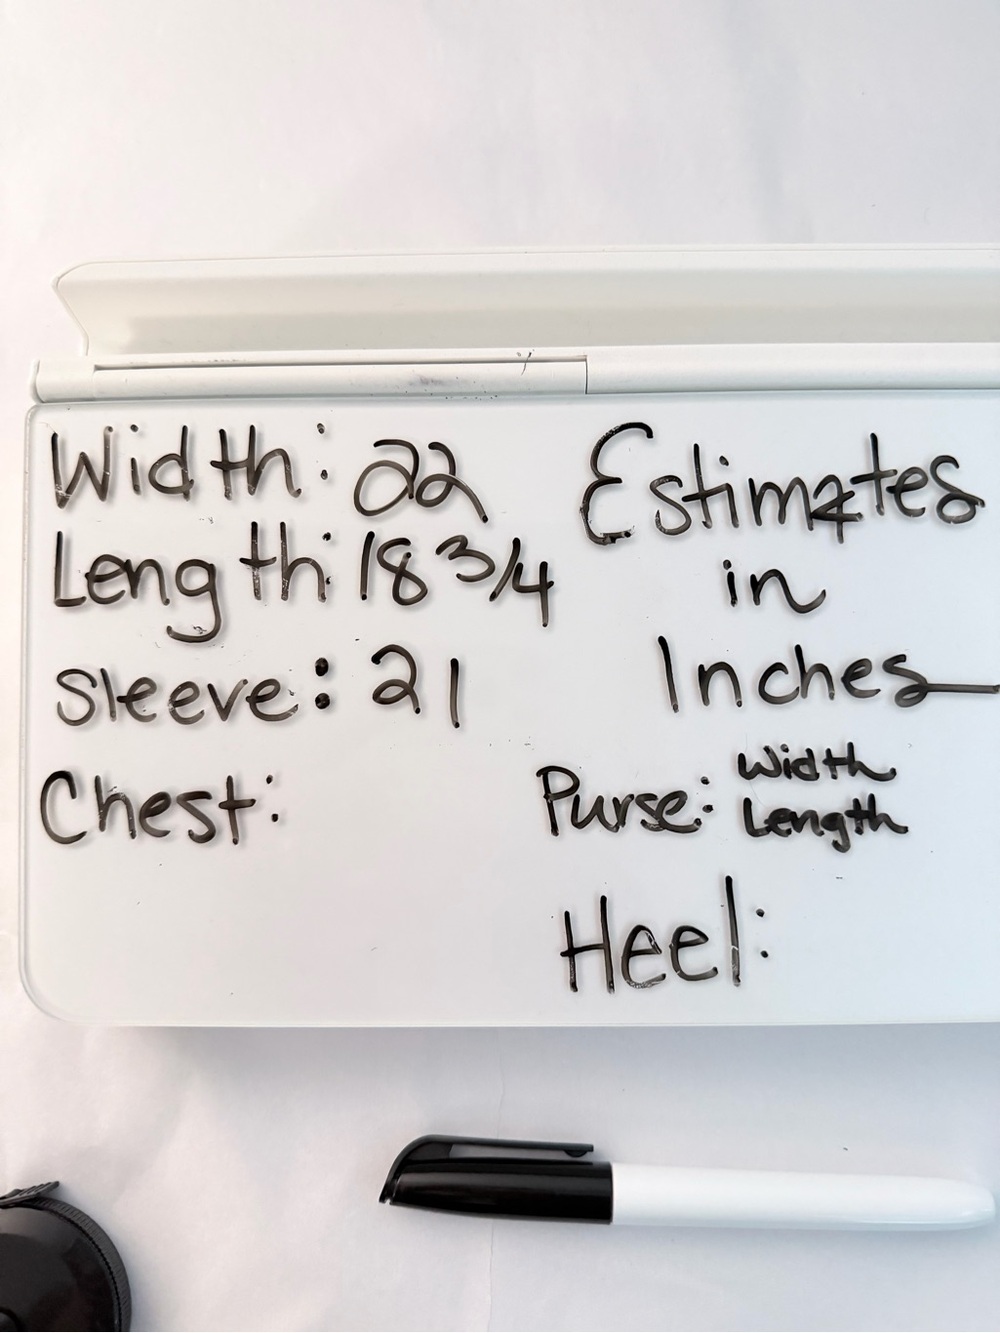 Width: 22
Length: 18 3/4
Sleeve: 21
Chest:
Estimates
in
Inches
Purse: Width
Length
Heel: